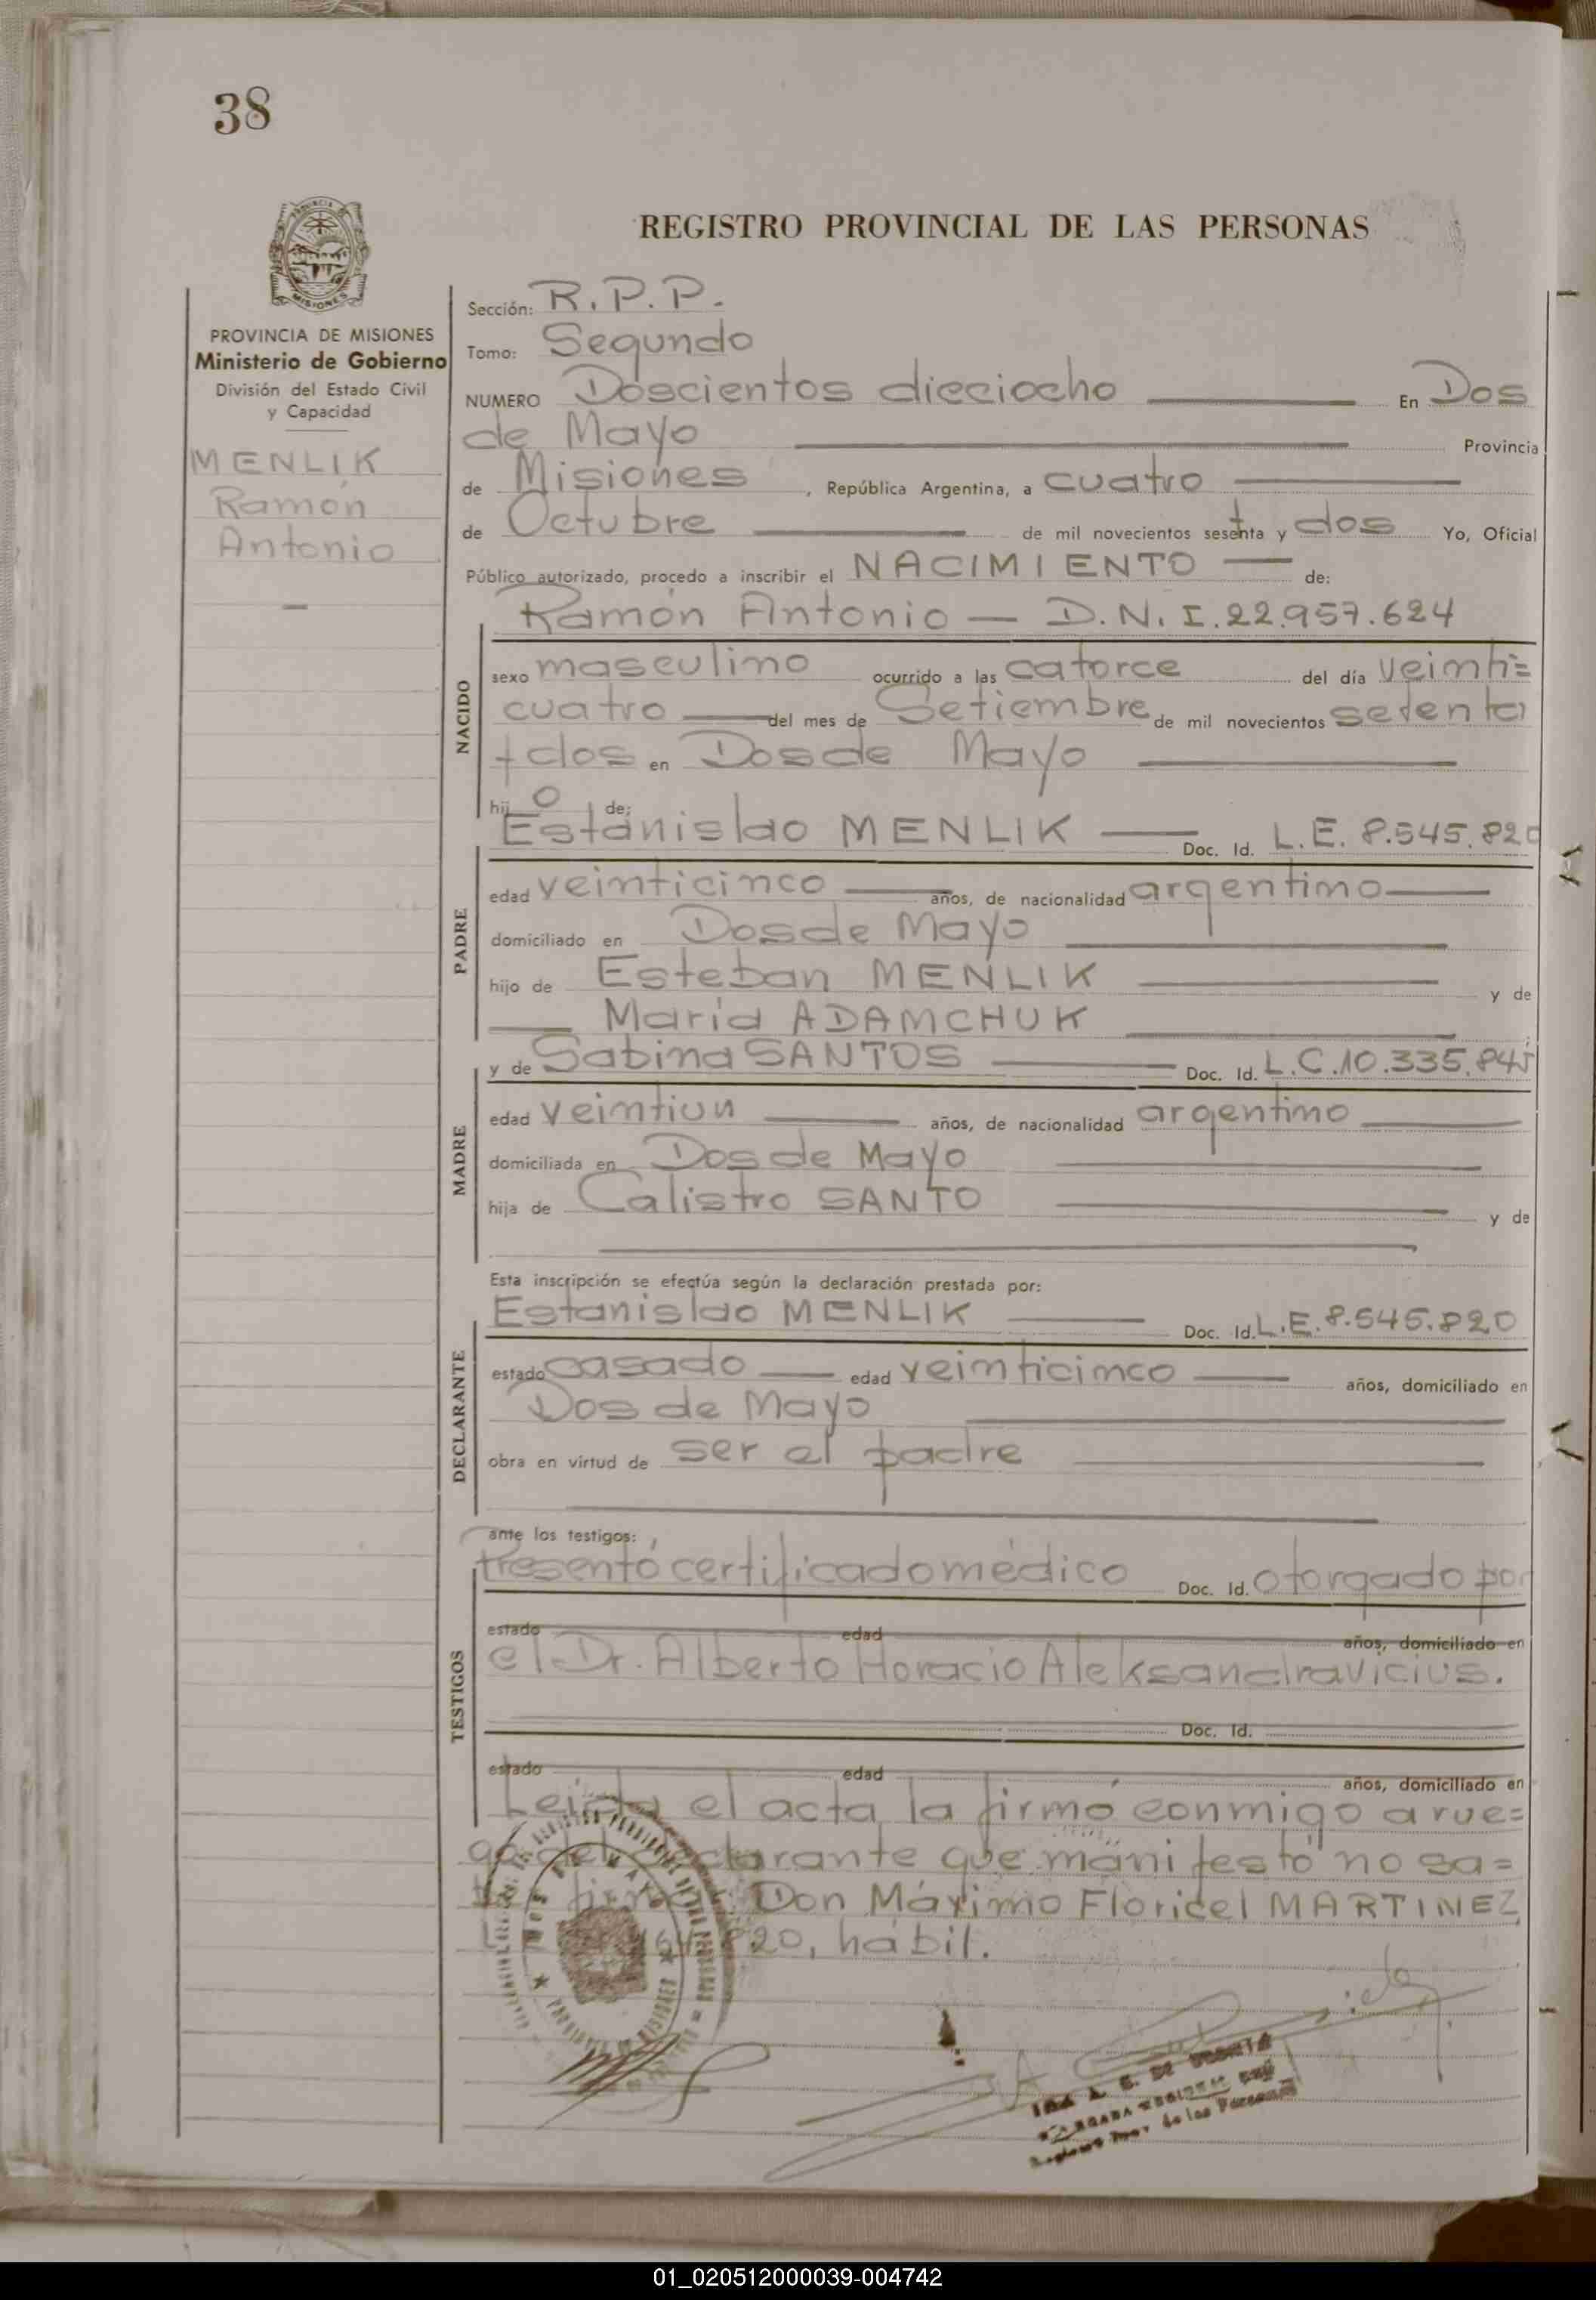 38
REGISTRO PROVINCIAL DE LAS PERSONAS
PROVINCIA DE MISIONES
Ministerio de Gobierno
División del Estado Civil
y Capacidad
MENLIK
Ramón
Antonio
Sección: R.P.P.
Tomo: Segundo
NUMERO Doscientos dieciocho En Dos
de Mayo Provincia
de Misiones, República Argentina, a cuatro
de Octubre de mil novecientos setenta y dos Yo, Oficial
Público autorizado, procedo a inscribir el NACIMIENTO de:
Ramón Antonio — D.N.I. 22.957.624
NACIDO
sexo masculino ocurrido a las catorce del día veinti=
cuatro del mes de Setiembre de mil novecientos setenta
y dos en Dos de Mayo
hijo de:
Estanislao MENLIK Doc. Id. L.E. 8.545.820
PADRE
edad veinticinco años, de nacionalidad argentino
domiciliado en Dos de Mayo
hijo de Esteban MENLIK y de
María ADAMCHUK
y de Sabina SANTOS Doc. Id. L.C. 10.335.845
MADRE
edad veintiun años, de nacionalidad argentino
domiciliada en Dos de Mayo
hija de Calistro SANTO y de
Esta inscripción se efectúa según la declaración prestada por:
Estanislao MENLIK Doc. Id. L.E. 8.545.820
DECLARANTE
estado casado edad veinticinco años, domiciliado en
Dos de Mayo
obra en virtud de ser el padre
ante los testigos:
Presentó certificado médico Doc. Id. otorgado por
TESTIGOS
estado edad años, domiciliado en
el Dr. Alberto Horacio Aleksandravicius.
Doc. Id.
estado edad años, domiciliado en
Leida el acta, la firmó conmigo a rue=
go del declarante que manifestó no sa=
firmar Don Máximo Floricel MARTINEZ,
820, hábil.
de las Personas
01_020512000039-004742